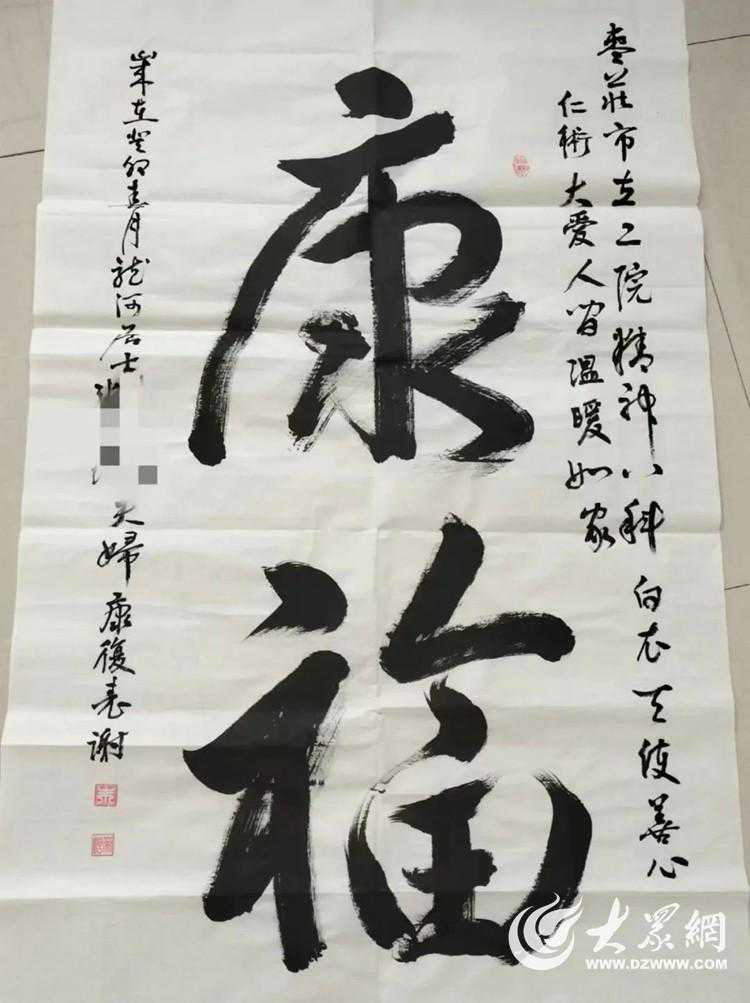 枣莊市立二院精神八科 白衣天使善心
仁術大愛人间溫暖如家
康福
歲在癸卯春月龍河居士
夫婦康復致謝
大眾網
WWW.DZWWW.COM